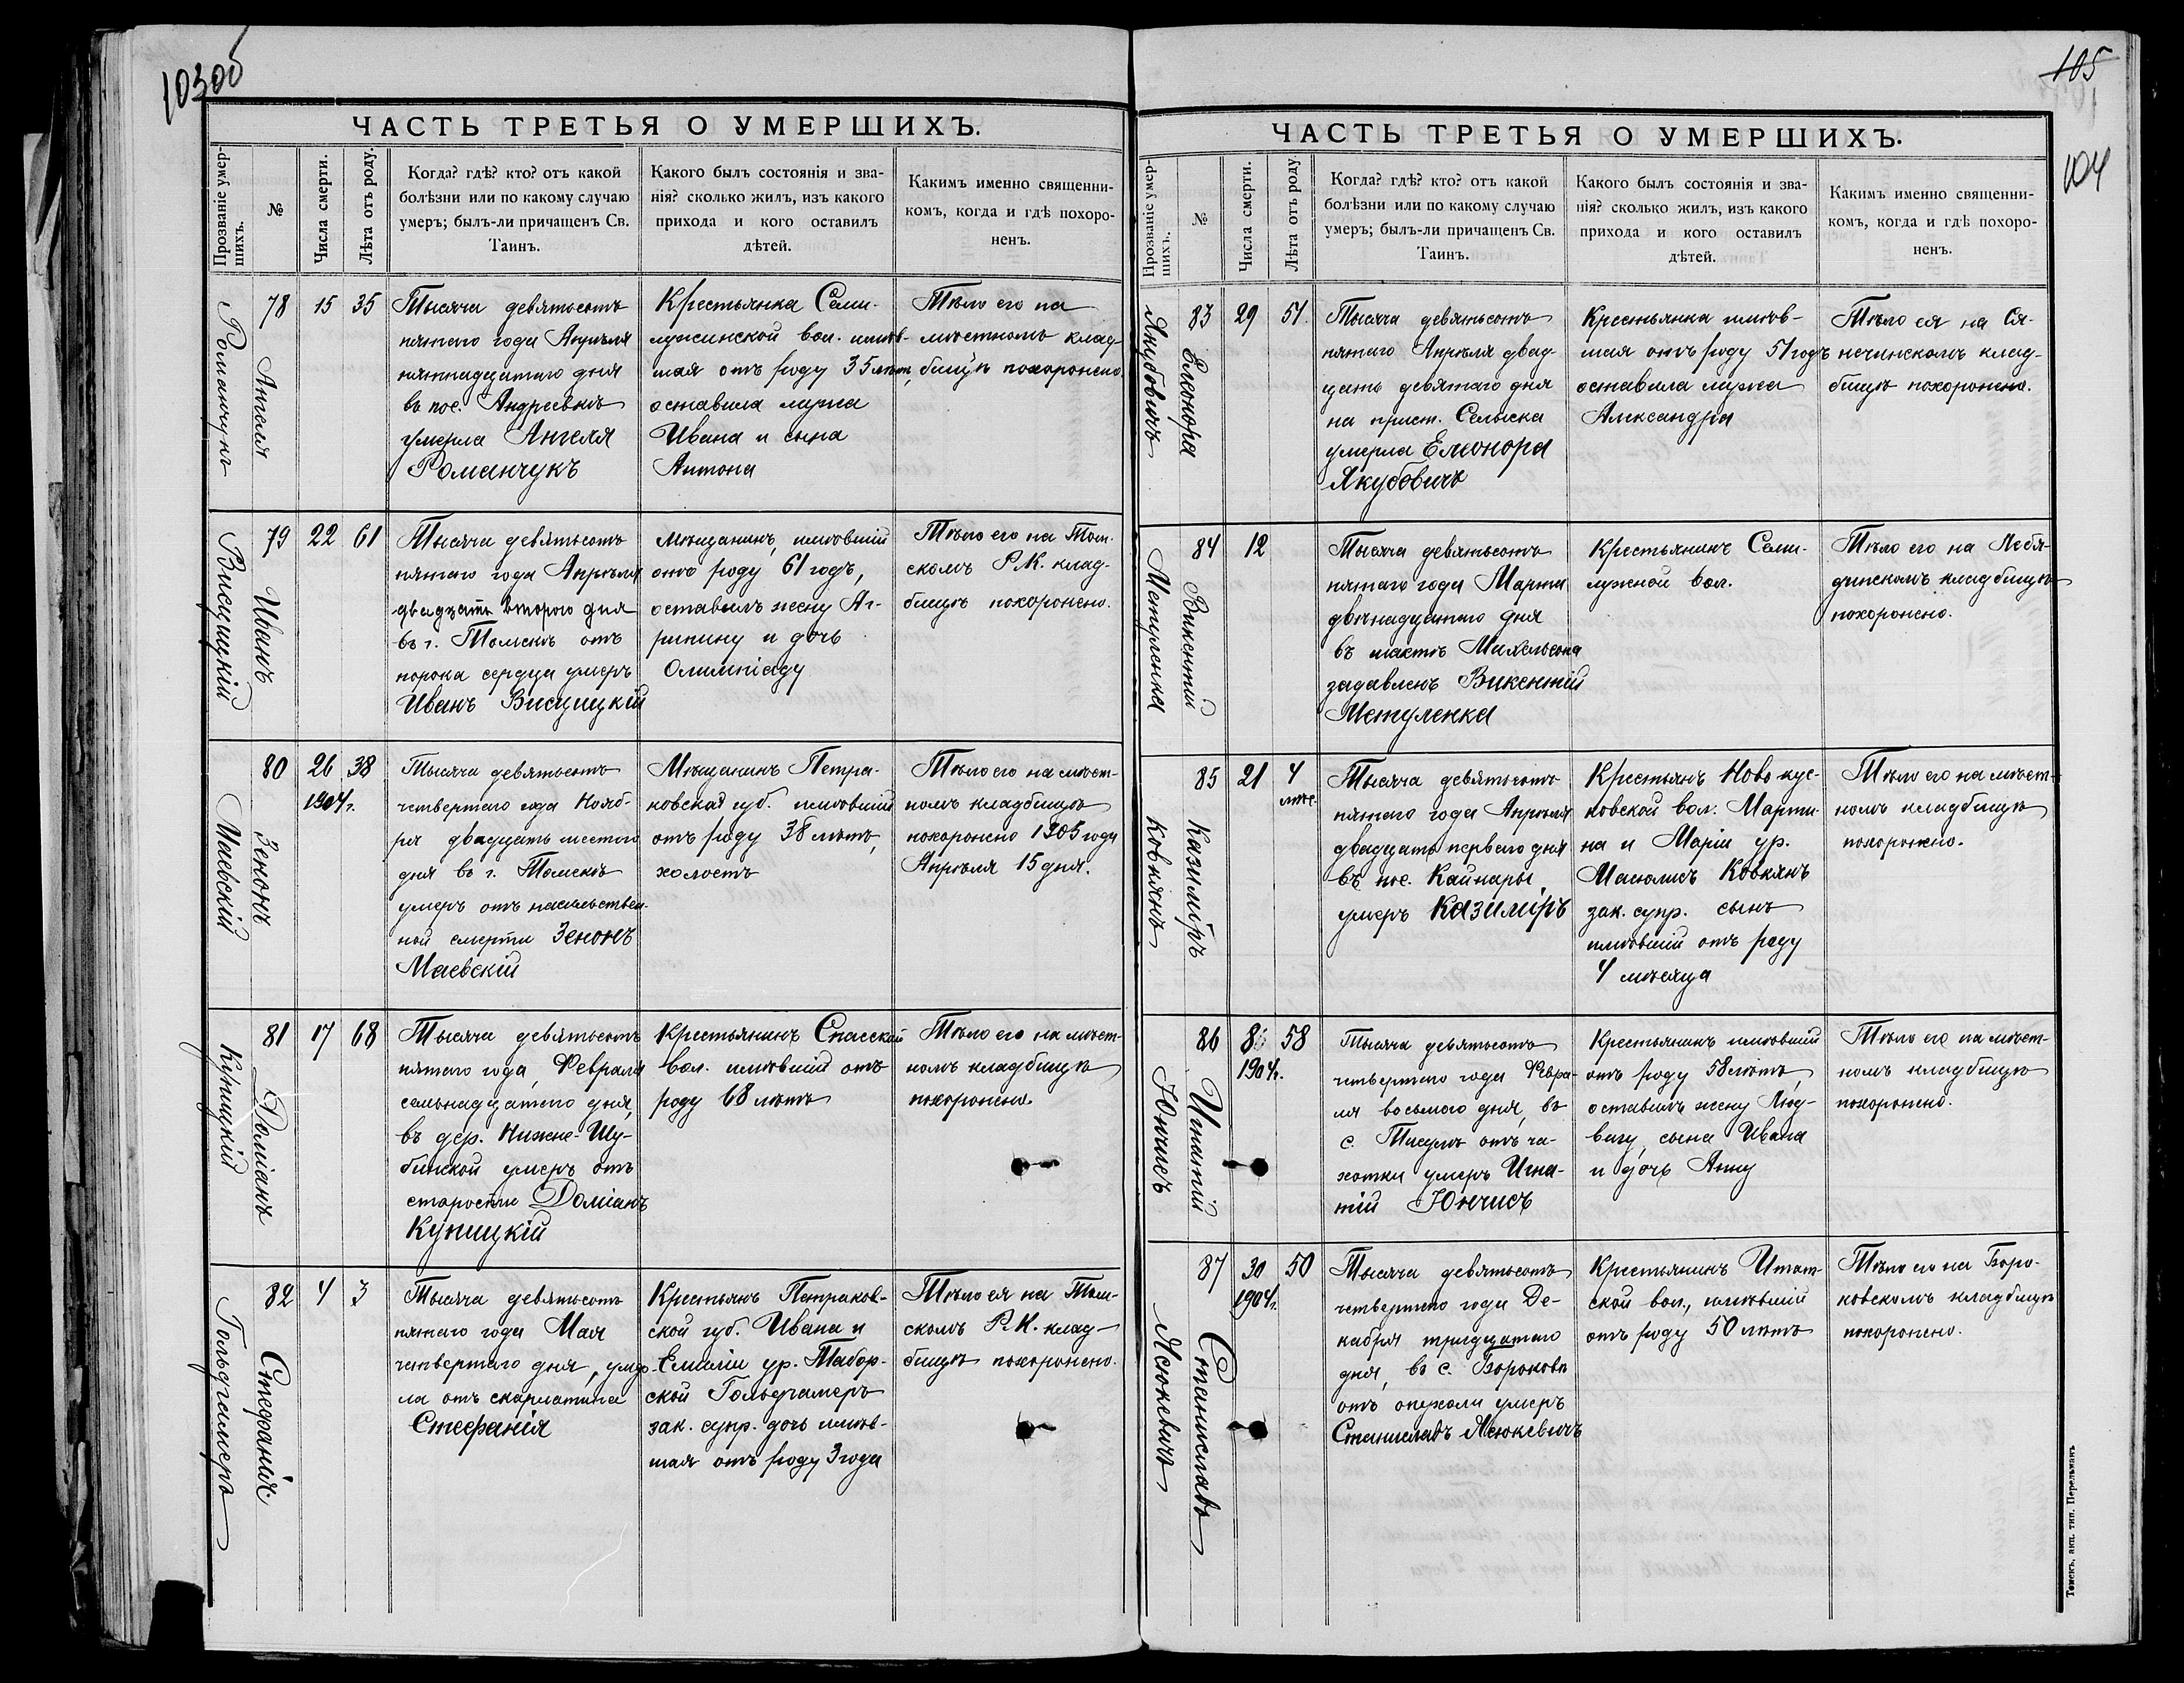 103об
ЧАСТЬ ТРЕТЬЯ О УМЕРШИХЪ.
Прозваніе умер-
шихъ.
№
Числа смерти.
Лѣта отъ роду.
Когда? гдѣ? кто? отъ какой
болѣзни или по какому случаю
умеръ; былъ-ли причащенъ Св.
Таинъ.
Какого былъ состоянія и зва-
нія? сколько жилъ, изъ какого
прихода и кого оставилъ
дѣтей.
Какимъ именно священни-
комъ, когда и гдѣ похоро-
ненъ.
Романчукъ
Ангеля
78
15
35
Тысяча девятьсотъ
пятаго года Апрѣля
пятнадцатаго дня
въ пос. Андреевкѣ
умерла Ангеля
Романчукъ
Крестьянка Семи-
лужинской вол. имѣв-
шая отъ роду 35 лѣтъ,
оставила мужа
Ивана и сына
Антона
Тѣло его на
мѣстномъ клад-
бищѣ похоронено.
Висицкій
Иванъ
79
22
61
Тысяча девятьсотъ
пятаго года Апрѣля
двадцать второго дня
въ г. Томскѣ отъ
порока сердца умеръ
Иванъ Висицкій
Мѣщанинъ, имѣвшій
отъ роду 61 годъ,
оставилъ жену Аг-
рипину и дочь
Олимпіаду
Тѣло его на Том-
скомъ Р.К. клад-
бищѣ похоронено.
Маевскій
Зенонъ
80
26
1904 г.
38
Тысяча девятьсотъ
четвертаго года Нояб-
ря двадцать шестого
дня въ г. Томскѣ
умеръ отъ насильствен-
ной смерти Зенонъ
Маевскій
Мѣщанинъ Петра-
ковской губ. имѣвшій
отъ роду 38 лѣтъ,
холостъ
Тѣло его на мѣст-
номъ кладбищѣ
похоронено 1905 года
Апрѣля 15 дня.
Куницкій
Доміанъ
81
17
68
Тысяча девятьсотъ
пятаго года, Февраля
семьнадцатаго дня,
въ дер. Нижне-Шу-
бинской умеръ отъ
старости Доміанъ
Куницкій
Крестьянинъ Спасской
вол. имѣвшій отъ
роду 68 лѣтъ
Тѣло его на мѣст-
номъ кладбищѣ
похоронено.
Гольдгамеръ
Стефанія.
82
4
3
Тысяча девятьсотъ
пятаго года Мая
четвертаго дня, умер-
ла отъ скарлатины
Стефанія
Крестьянъ Петраков-
ской губ. Ивана и
Емиліи ур. Табор-
ской Гольдгамеръ
зак. супр. дочь имѣв-
шая отъ роду 3 года
Тѣло ея на Том-
скомъ Р.К. клад-
бищѣ похоронено.
105
104
ЧАСТЬ ТРЕТЬЯ О УМЕРШИХЪ.
Прозваніе умер-
шихъ.
№
Числа смерти.
Лѣта отъ роду.
Когда? гдѣ? кто? отъ какой
болѣзни или по какому случаю
умеръ; былъ-ли причащенъ Св.
Таинъ.
Какого былъ состоянія и зва-
нія? сколько жилъ, изъ какого
прихода и кого оставилъ
дѣтей.
Какимъ именно священни-
комъ, когда и гдѣ похоро-
ненъ.
Якубовичъ
Елеонора
83
29
51.
Тысяча девятьсотъ
пятаго Апрѣля двад-
цать девятаго дня
на прист.
умерла Елеонора
Якубовичъ
Крестьянка имѣв-
шая отъ роду 51 годъ
оставила мужа
Александра
Тѣло ея на Ся-
нечинскомъ клад-
бищѣ похоронено.
Метуленка
Викентій
84
12
Тысяча девятьсотъ
пятаго года Марта
двѣнадцатаго дня
въ шахтѣ Михельсона
задавленъ Викентій
Метуленка
Крестьянинъ Семи-
лужной вол.
Тѣло его на Лебя-
динскомъ кладбищѣ
похоронено.
Ковкянъ
Казиміръ
85
21
4
мѣс.
Тысяча девятьсотъ
пятаго года Апрѣля
двадцать перваго дня
въ пос. Кайнары
умеръ Казиміръ
Крестьянъ Ново-кус-
ковской вол. Марти-
на и Маріи ур.
Ковкянъ
зак. супр. сынъ
имѣвшій отъ роду
4 мѣсяца
Тѣло его на мѣст-
номъ кладбищѣ
похоронено.
Юнчисъ
Игнатій
86
8
1904 г.
58
Тысяча девятьсотъ
четвертаго года Февра-
ля восьмого дня, въ
с. Тисулѣ отъ ча-
хотки умеръ Игна-
тій Юнчисъ
Крестьянинъ имѣвшій
отъ роду 58 лѣтъ,
оставилъ жену Люд-
вигу, сына Ивана
и дочь Анну
Тѣло его на мѣст-
номъ кладбищѣ
похоронено.
Ясюкевичъ
Станиславъ
87
30
1904 г.
50
Тысяча девятьсотъ
четвертаго года Де-
кабря тридцатаго
дня, въ с. Бороковѣ
отъ опухоли умеръ
Станиславъ Ясюкевичъ
Крестьянинъ Итат-
ской вол., имѣвшій
отъ роду 50 лѣтъ
Тѣло его на Боро-
ковскомъ кладбищѣ
похоронено.
Томскъ, акц. тип. Перельманъ